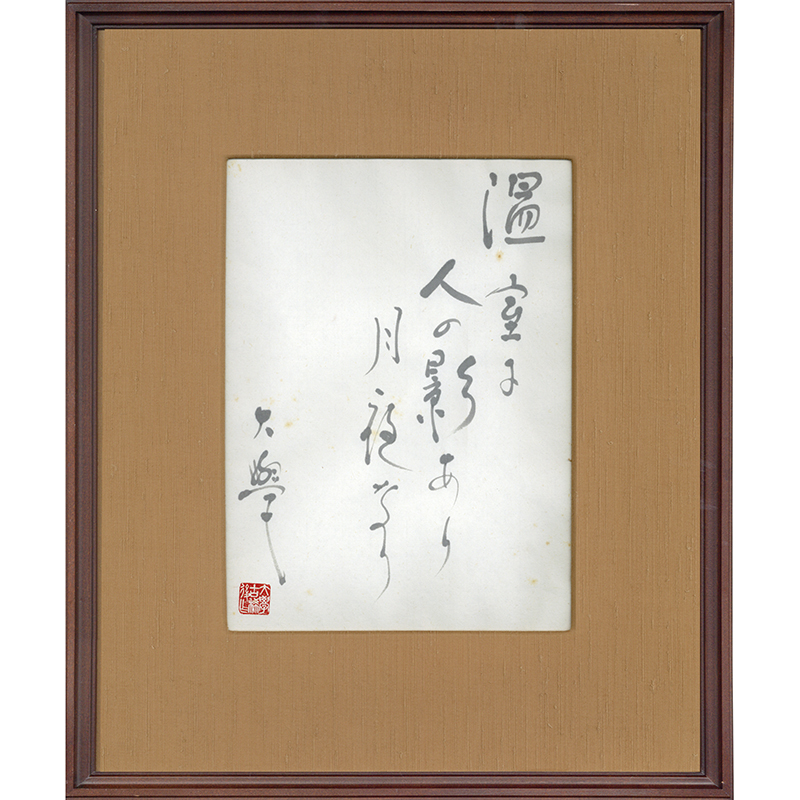 温室に
人の影あり
月夜なり
大學